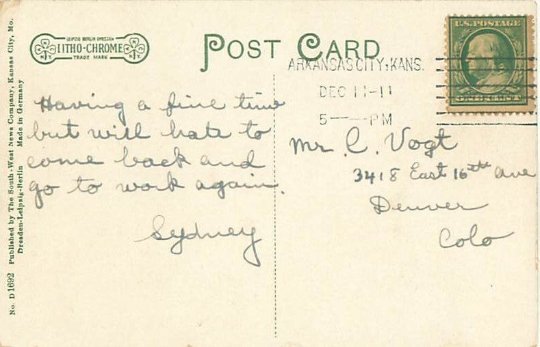 No. D 1692 Published by The South-West News Company, Kansas City, Mo.
Dresden-Leipzig-Berlin Made in Germany
LEIPZIG BERLIN DRESDEN
LITHO-CHROME
TRADE MARK
POST CARD
U.S. POSTAGE
ONE CENT
ARKANSAS CITY, KANS.
DEC 11-11
5—PM
Having a fine time
but will hate to
come back and
go to work again.
Sydney
Mr. C. Vogt
3418 East 16th ave
Denver
Colo